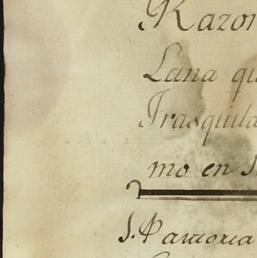 Razon
Lana qu
Trasquila
mo en S
S. Pantonia